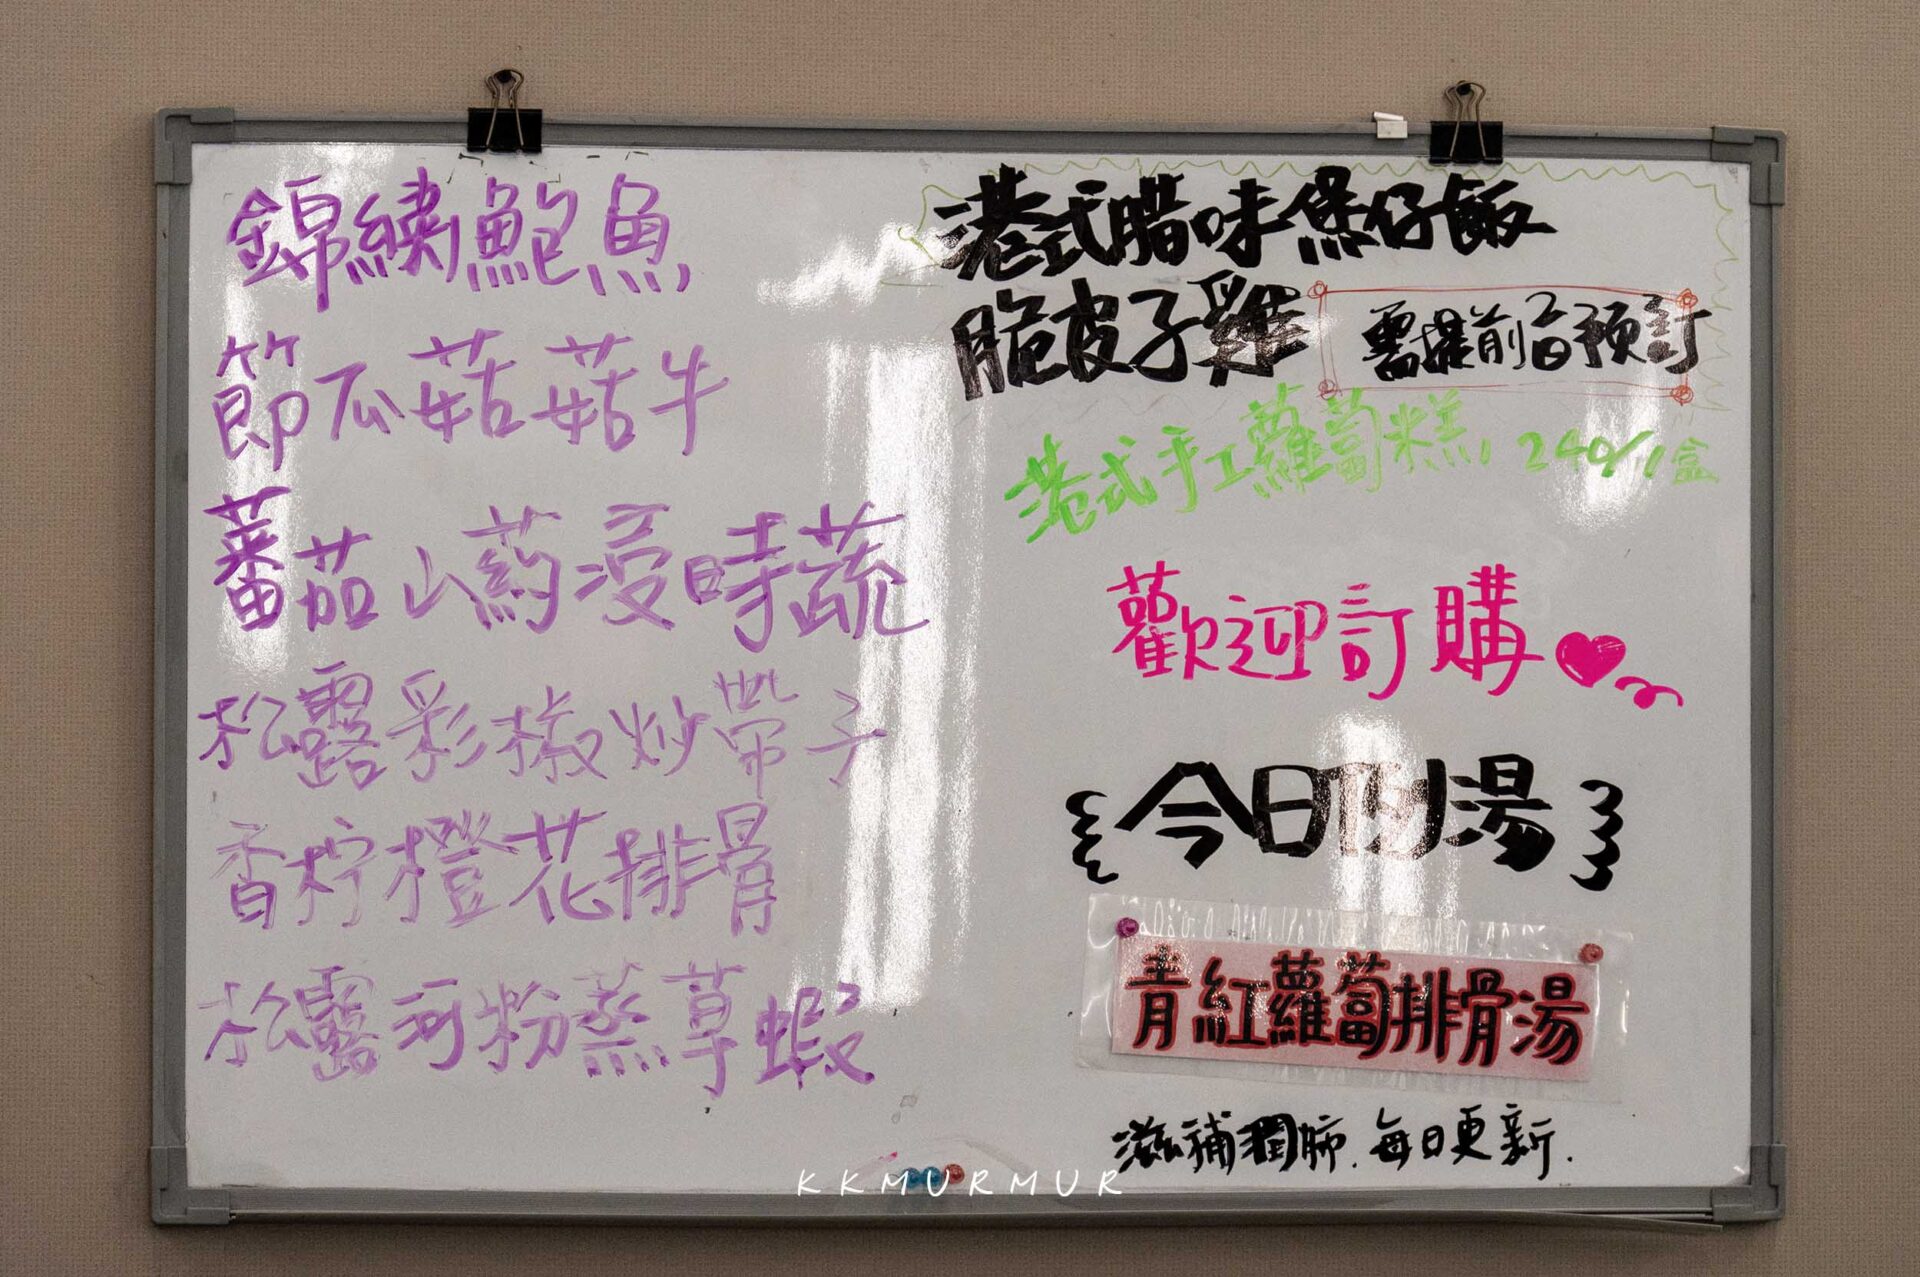 錦繡鮑魚
節瓜菇菇牛
蕃茄山葯浸時蔬
松露彩椒炒帶子
香柠橙花排骨
松露河粉蒸草蝦
港式腊味煲仔飯
脆皮子雞 需提前2日預訂
港式手工蘿蔔糕, 240/1盒
歡迎訂購
今日例湯
青紅蘿蔔排骨湯
滋補潤肺.每日更新.
KKMURMUR